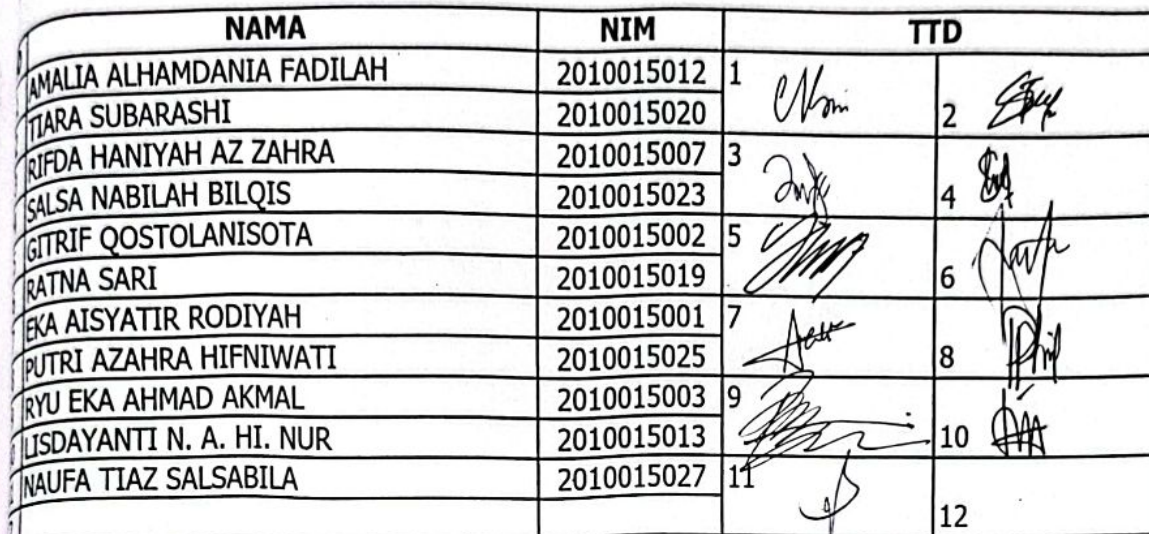 NAMA NIM TTD
AMALIA ALHAMDANIA FADILAH 2010015012 1
TIARA SUBARASHI 2010015020 2
RIFDA HANIYAH AZ ZAHRA 2010015007 3
SALSA NABILAH BILQIS 2010015023 4
GITRIF QOSTOLANISOTA 2010015002 5
RATNA SARI 2010015019 6
EKA AISYATIR RODIYAH 2010015001 7
PUTRI AZAHRA HIFNIWATI 2010015025 8
RYU EKA AHMAD AKMAL 2010015003 9
LISDAYANTI N. A. HI. NUR 2010015013 10
NAUFA TIAZ SALSABILA 2010015027 11
12